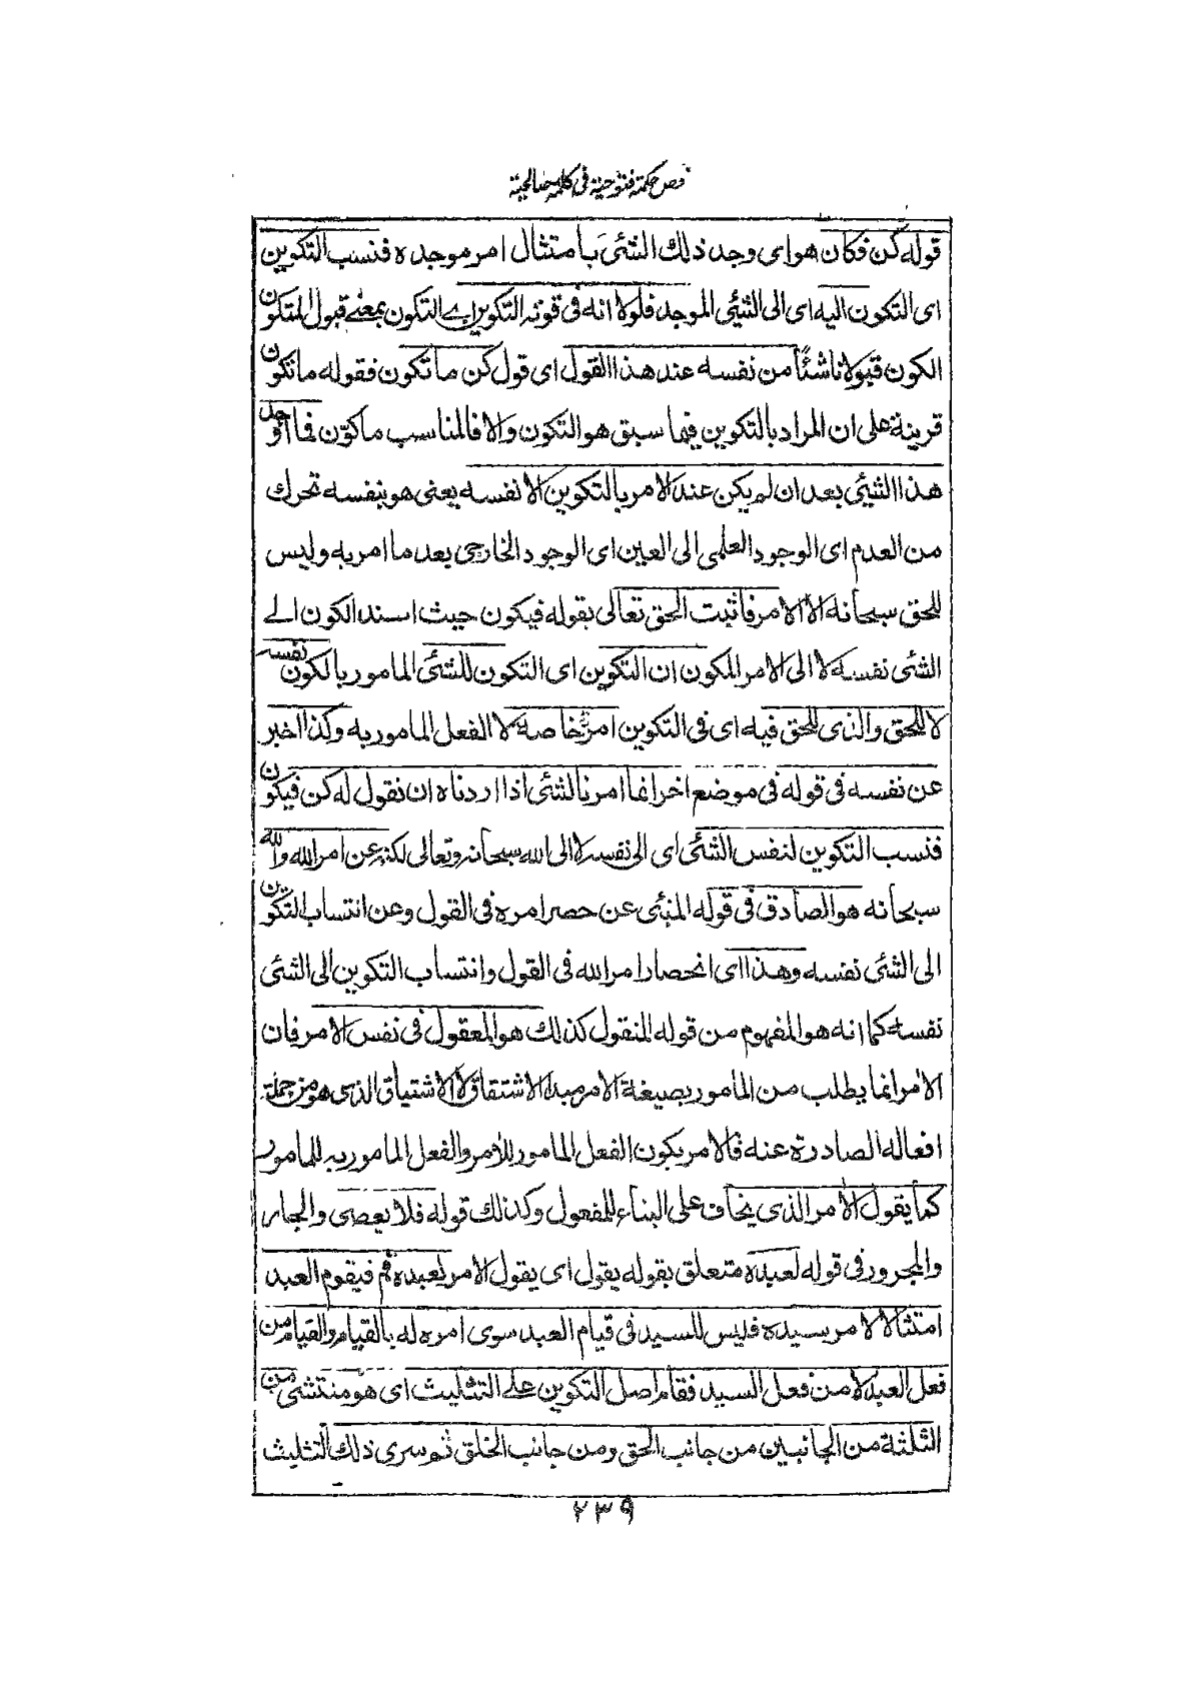 فص حكمة فتوحية فى كلمة صالحية
قوله كن فكان هو اى وجد ذلك الشئى بامتثال امر موجده فنسب التكوين
اى التكون اليه اى الى الشئى الموجد فلولا انه فى قوته التكوين اے التكون بمعنے قبول المتكون
الكون قبولا ناشئاً من نفسه عند هذا القول اى قول كن ما تكون فقوله ما تكون
قرينة على ان المراد بالتكوين فيما سبق هو التكون والا فالمناسب ما كوّن فما اوجد
هذا الشئى بعد ان لم يكن عند الامر بالتكوين الا نفسه يعنى هو بنفسه تحرك
من العدم اى الوجود العلمى الى العين اى الوجود الخارجى بعد ما امر به وليس
للحق سبحانه الا الامر فاثبت الحق تعالى بقوله فيكون حيث اسند الكون الے
الشئى نفسه لا الى الامر المكون ان التكوين اى التكون للشئى المامور بالكون نفسه
لا للحق والذى للحق فيه اى فى التكوين امره خاصة لا الفعل المامور به وكذا اخبر
عن نفسه فى قوله فى موضع اخر انما امرنا الشئى اذا اردناه ان نقول له كن فيكون
فنسب التكوين لنفس الشئى اى الى نفسه لا الى الله سبحانه وتعالى لكنه عن امر الله والله
سبحانه هو الصادق فى قوله المنبئى عن حصر امره فى القول وعن انتساب التكوين
الى الشئى نفسه وهذا اى انحصار امر الله فى القول وانتساب التكوين الى الشئى
نفسه كما انه هو المفهوم من قوله المنقول كذلك هو المعقول فى نفس الامر فان
الأمر انما يطلب من المأمور بصيغة الامر مبدء الاشتقاق لا الاشتياق الذى هو من جملة
افعاله الصادرة عنه فالامر يكون الفعل المامور للأمر والفعل المامور به للمامور
كما يقول الأمر الذى يخاف على البناء للمفعول وكذلك قوله فلا يعصى والجار
والمجرور فى قوله لعبده متعلق بقوله يقول اى يقول الامر لعبده قم فيقوم العبد
امتثالا لامر سيده فليس للسيد فى قيام العبد سوى امره له بالقيام والقيام من
فعل العبد لا من فعل السيد فقام اصل التكوين علے التثليث اى هو منتشى من
الثلثة من الجانبين من جانب الحق ومن جانب الخلق ثم سرى ذلك التثليث
٢٣٩